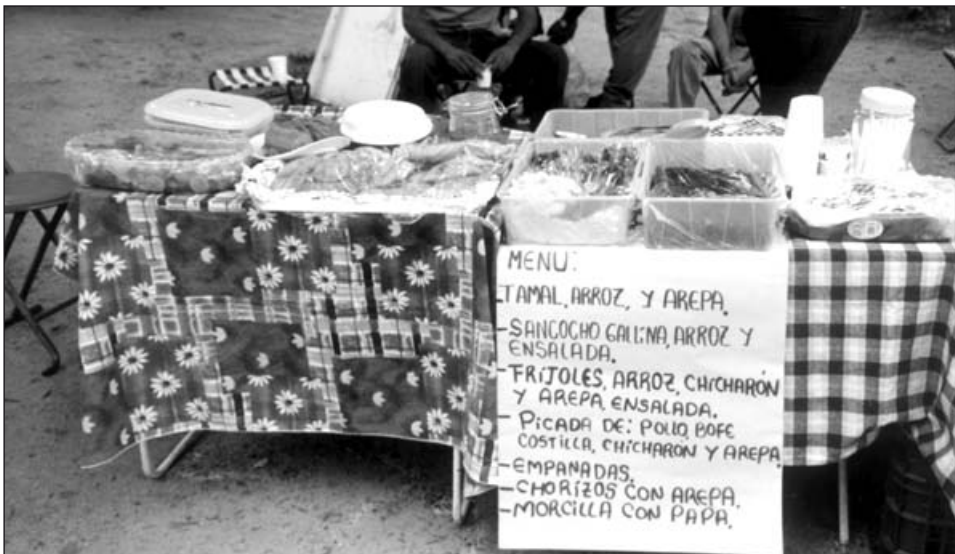 MENU:
-TAMAL, ARROZ, Y AREPA.
-SANCOCHO GALLINA, ARROZ Y
ENSALADA.
-FRIJOLES, ARROZ, CHICHARÓN
Y AREPA, ENSALADA.
-PICADA DE: POLLO, BOFE
COSTILLA, CHICHARÓN Y AREPA
-EMPANADAS.
-CHORIZOS CON AREPA.
-MORCILLA CON PAPA.